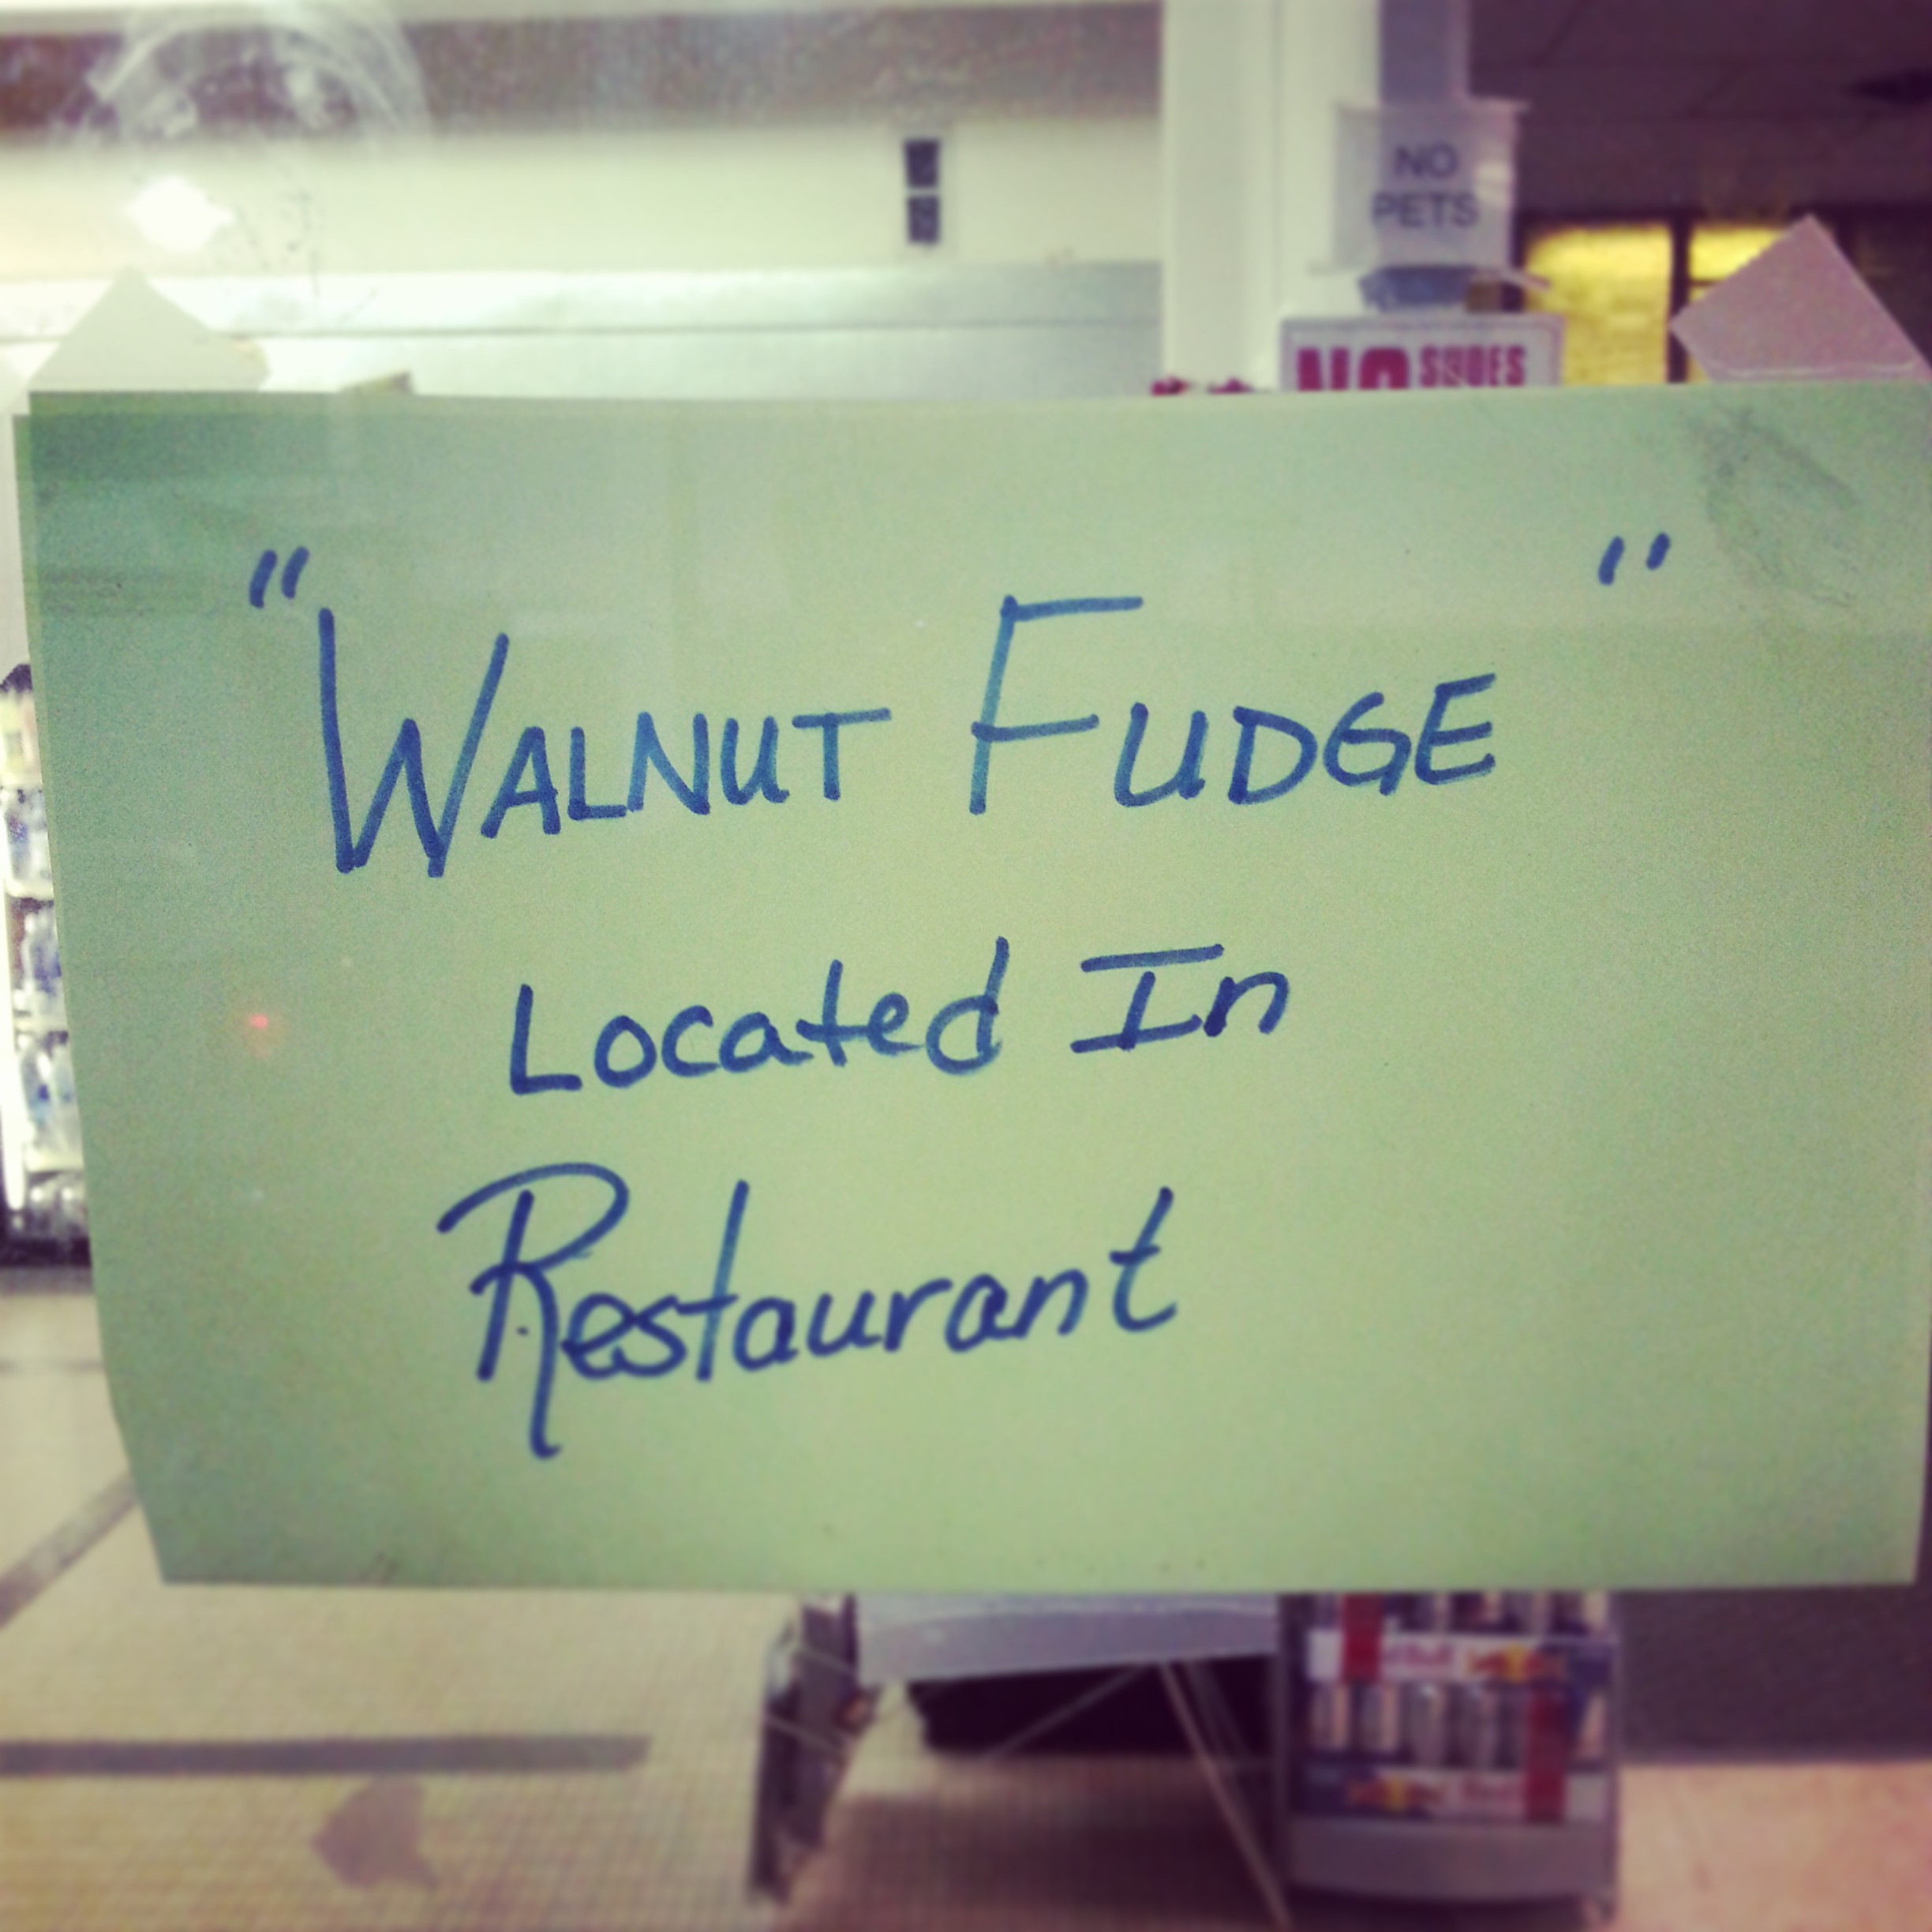 NO
PETS
NO SHOES
"WALNUT FUDGE"
Located In
Restaurant